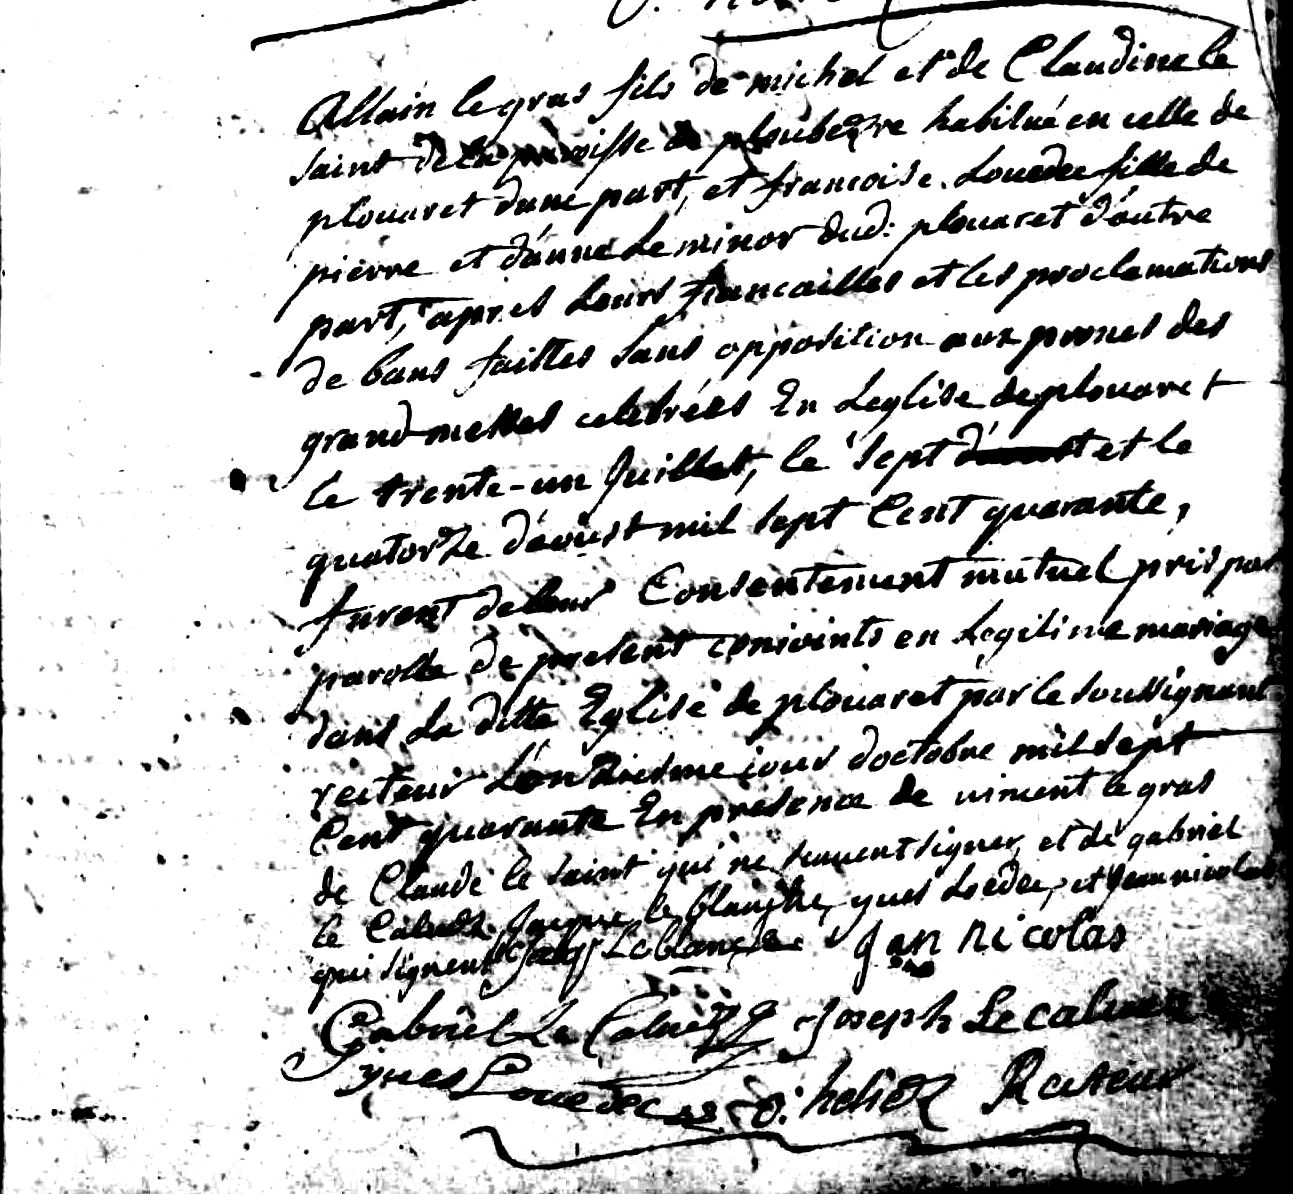 Allain le gras fils de michel et de Claudine le
saint de la paroisse de ploubezre habitué en celle de
plouaret d'une part, et francoise Louedec fille de
pierre et d'anne Le minor dud: plouaret d'autre
part, apres Leurs fiancailles et les proclamations
de bans faittes sans opposition aux prones des
grand messes celebrées En Leglise de plouaret
le trente-un Juillet, le sept d'aoust et le
quatorze d'aoust mil sept Cent quarante,
furent de leur Consentement mutuel pris par
parolle de present conjoints en Legitime mariage
dans La ditte Eglise de plouaret par le soussignant
recteur L'onziesme jour d'octobre mil sept
Cent quarante En presence de vincent le gras
de Claude le saint qui ne scavent signer, et de gabriel
le Calvez Jacque le blanche, yves Loedec, et Jean nicolas
qui signent Jacq Leblance Jan nicolas
Gabriel Le Calvez Joseph Le calvez
yves Louedec o: heliez Recteur